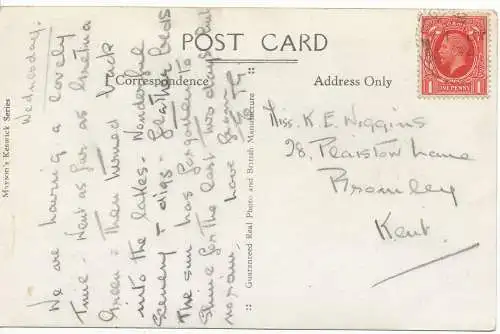 POST CARD
Correspondence
Address Only
ONE PENNY
Wednesday.
We are having a lovely
time - Went as far as Gretna
Green - then turned back
into the lakes - Wonderful
scenery & digs - feather beds
The sun has forgotten to
shine for the last two days but
no rain - have
Miss. K. E. Wiggins
28, Plaistow Lane
Bromley
Kent.
Mayson's Keswick Series
:: Guaranteed Real Photo and British Manufacture ::